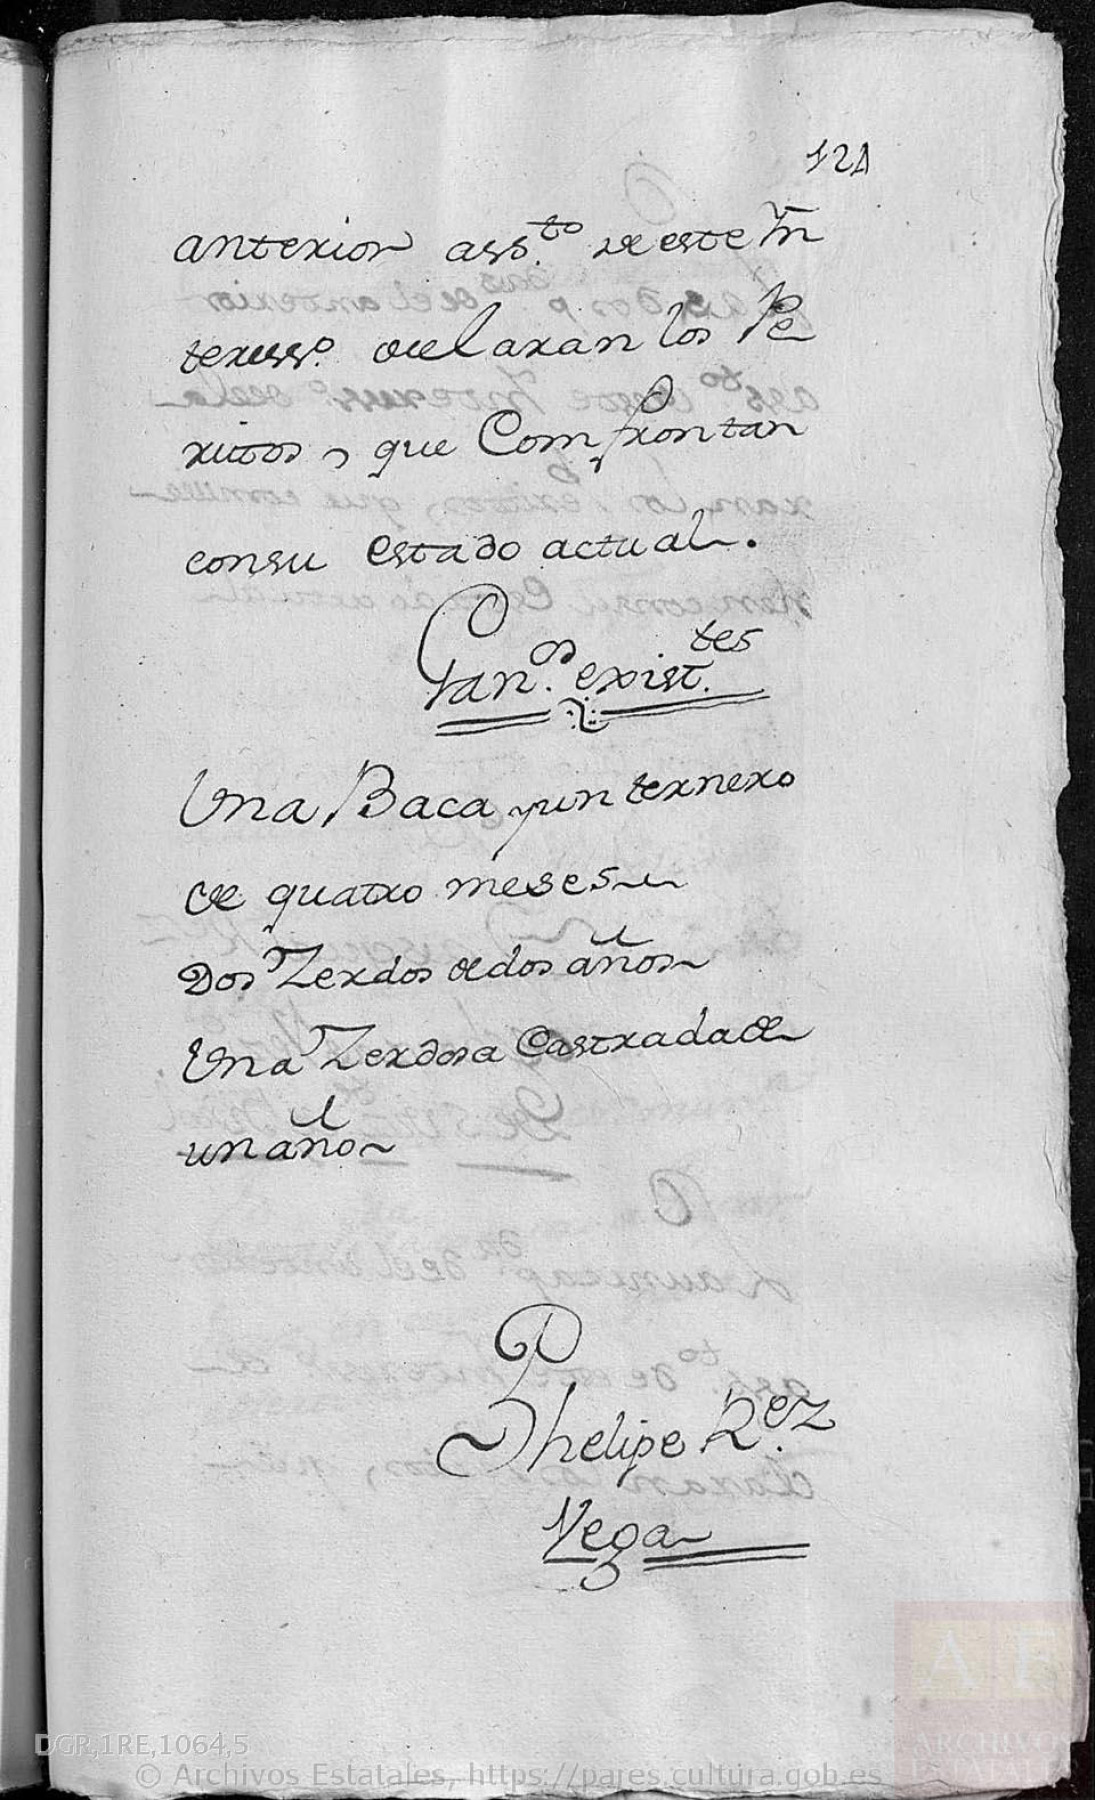 121
anterior ass.to de este Yn
teress.o declaran los Pe
ritos, que Comfrontan
consu estado actual.
Gan.os exist.tes
Una Baca y un ternero
de quatro meses
Dos Zerdos de dos años
Una Zerdosa Castrada de
un año
Phelipe R.ez
Vega
DGR,1RE,1064,5
© Archivos Estatales, https://pares.cultura.gob.es
AE
ARCHIVOS
ESTATALES